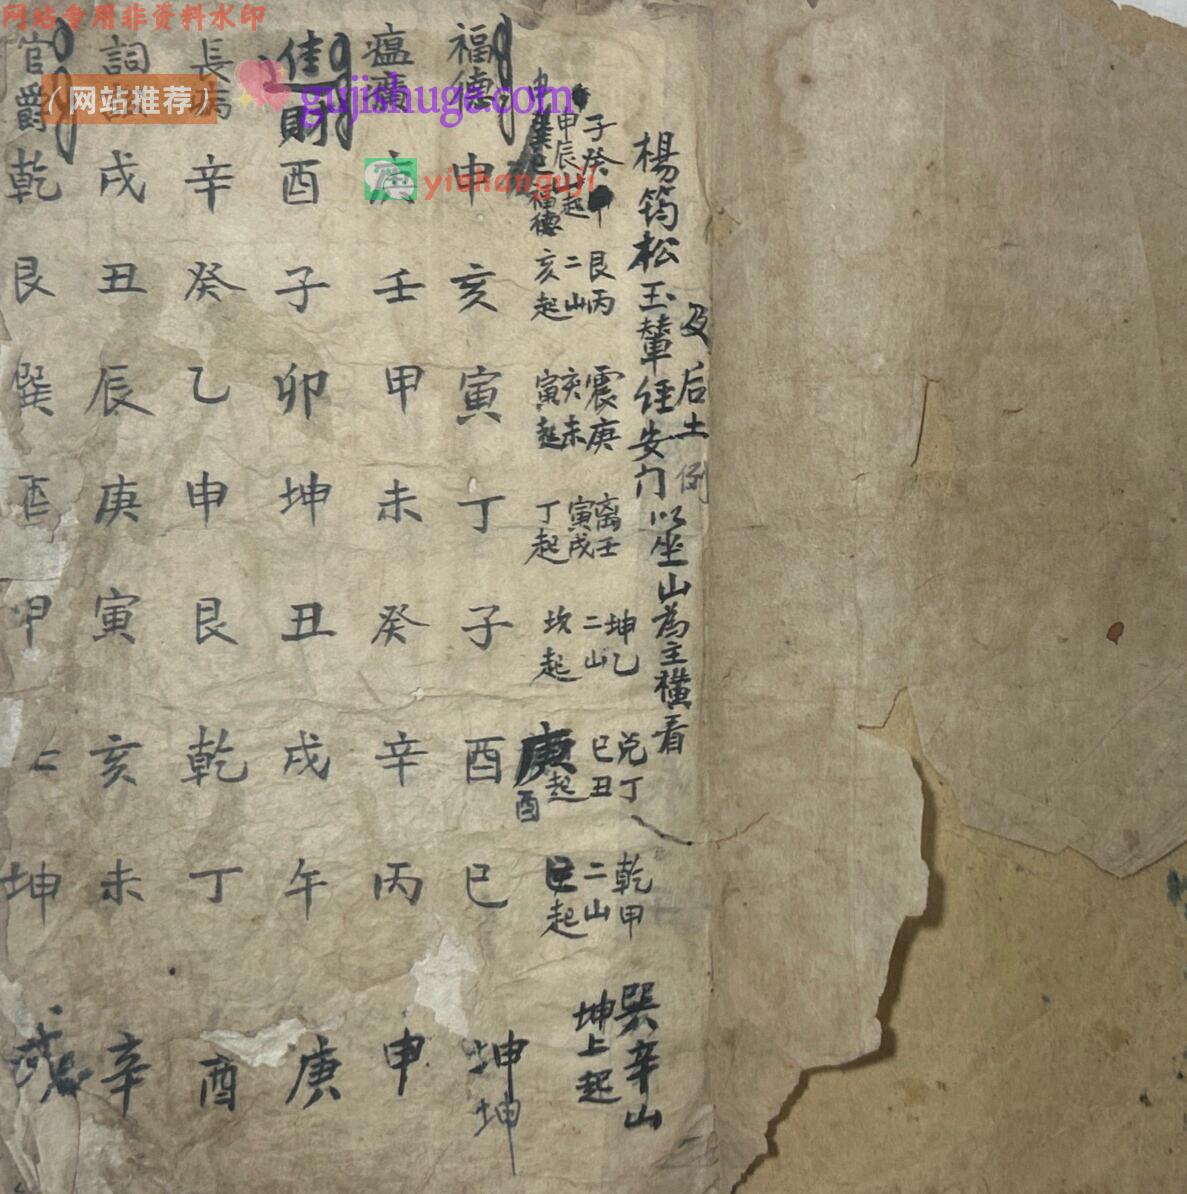 网站专用非资料水印
（网站推荐）
gujishuge.com
yishanguji
楊筠松玉輦経安门以坐山為主橫看
及后土例
子癸甲
甲辰起
福德
艮丙
二山
亥起
震庚
亥未
寅起
离壬
寅戌
丁起
坤乙
二山
坎起
兌丁
巳丑
庚起
酉
乾甲
二山
巳起
巽辛山
坤上起
福德 申 亥 寅 丁 子 酉 巳 坤 坤
瘟㾮 庚 壬 甲 未 癸 辛 丙 申
進財 酉 子 卯 坤 丑 戌 午 庚
長病 辛 癸 乙 申 艮 乾 丁 酉
詞訟 戌 丑 辰 庚 寅 亥 未 辛
官爵 乾 艮 巽 酉 甲 坤